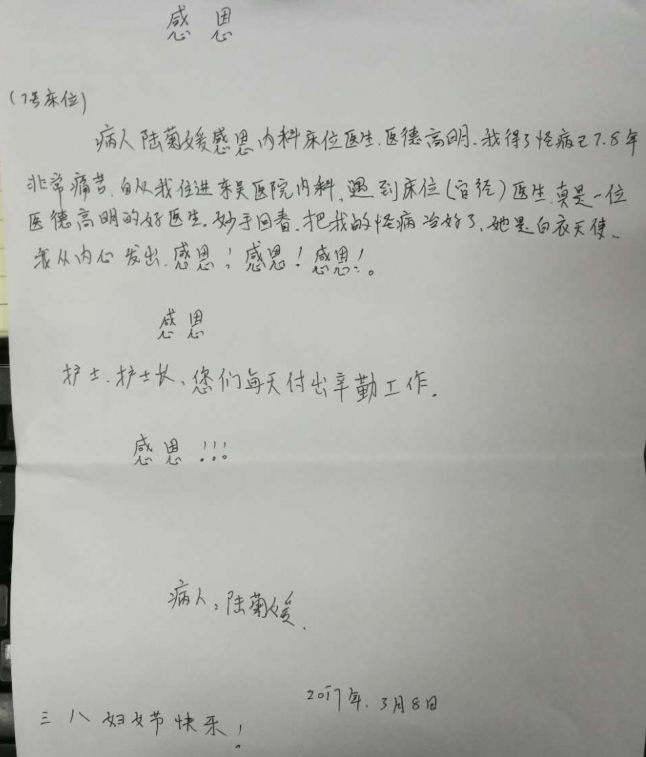 感恩
(7号床位)
病人陆菊媛感恩内科床位医生.医德高明.我得了怪病已7.8年
非常痛苦.自从我住进东吴医院内科.遇到床位(官经)医生.真是一位
医德高明的好医生.妙手回春.把我的怪病治好了、她是白衣天使、
我从内心发出.感恩!感恩!感恩!。
感恩
护士.护士长、您们每天付出辛勤工作.
感恩!!!
病人:陆菊媛.
2017年.3月8日
三八妇女节快乐!